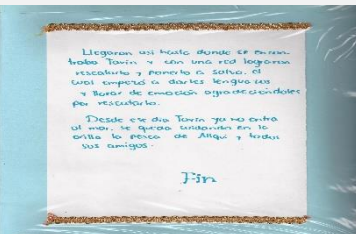 Llegaron asi hasta donde se encon
traba Tavin y con una red lograron
rescatarlo y ponerlo a salvo. el
cual empezó a darles lenguazos
y llorar de emoción agradeciendoles
por rescatarlo.
Desde ese dia Tavin ya no entra
al mar, se queda cuidando en la
orilla la pesca de Allqu y todos
sus amigos.
Fin